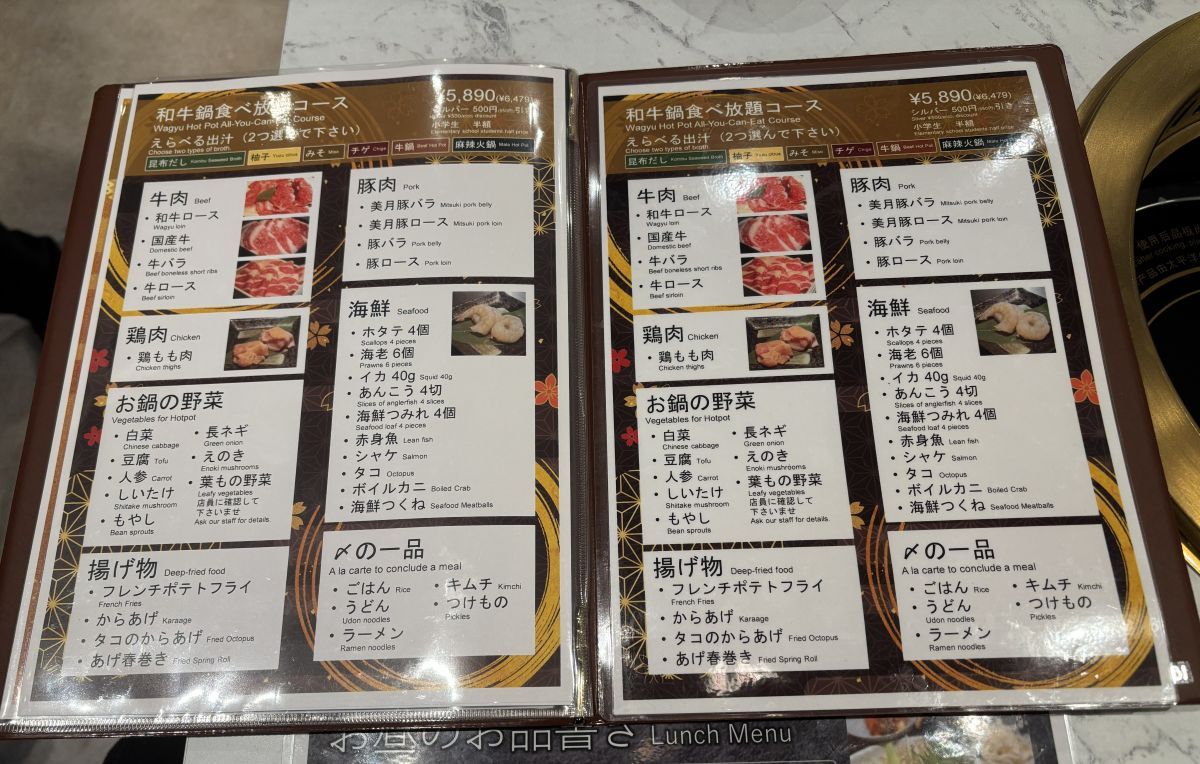 和牛鍋食べ放題コース
Wagyu Hot Pot All-You-Can-Eat Course
¥5,890(¥6,479)
シルバー 500円引き
小学生 半額
Elementary school students half price
えらべる出汁（2つ選んで下さい）
Choose two types of broth.
昆布だし Kombu Seaweed Broth 柚子 Yuzu citrus みそ Miso チゲ Chige 牛鍋 Beef Hot Pot 麻辣火鍋 Mala Hot Pot
牛肉 Beef
・和牛ロース
Wagyu loin
・国産牛
Domestic beef
・牛バラ
Beef boneless short ribs
・牛ロース
Beef sirloin
鶏肉 Chicken
・鶏もも肉
Chicken thighs
お鍋の野菜
Vegetables for Hotpot
・白菜
Chinese cabbage
・豆腐 Tofu
・人参 Carrot
・しいたけ
Shiitake mushroom
・もやし
Bean sprouts
・長ネギ
Green onion
・えのき
Enoki mushrooms
・葉もの野菜
Leafy vegetables
店員に確認して
下さいませ
Ask our staff for details.
揚げ物 Deep-fried food
・フレンチポテトフライ
French Fries
・からあげ Karaage
・タコのからあげ Fried Octopus
・あげ春巻き Fried Spring Roll
豚肉 Pork
・美月豚バラ Mitsuki pork belly
・美月豚ロース Mitsuki pork loin
・豚バラ Pork belly
・豚ロース Pork loin
海鮮 Seafood
・ホタテ 4個
Scallops 4 pieces
・海老 6個
Prawns 6 pieces
・イカ 40g Squid 40g
・あんこう 4切
Slices of anglerfish 4 slices
・海鮮つみれ 4個
Seafood loaf 4 pieces
・赤身魚 Lean fish
・シャケ Salmon
・タコ Octopus
・ボイルカニ Boiled Crab
・海鮮つくね Seafood Meatballs
〆の一品
A la carte to conclude a meal
・ごはん Rice
・うどん
Udon noodles
・ラーメン
Ramen noodles
・キムチ Kimchi
・つけもの
Pickles
和牛鍋食べ放題コース
Wagyu Hot Pot All-You-Can-Eat Course
¥5,890(¥6,479)
シルバー 500円引き
小学生 半額
Elementary school students half price
えらべる出汁（2つ選んで下さい）
Choose two types of broth.
昆布だし Kombu Seaweed Broth 柚子 Yuzu citrus みそ Miso チゲ Chige 牛鍋 Beef Hot Pot 麻辣火鍋 Mala Hot Pot
牛肉 Beef
・和牛ロース
Wagyu loin
・国産牛
Domestic beef
・牛バラ
Beef boneless short ribs
・牛ロース
Beef sirloin
鶏肉 Chicken
・鶏もも肉
Chicken thighs
お鍋の野菜
Vegetables for Hotpot
・白菜
Chinese cabbage
・豆腐 Tofu
・人参 Carrot
・しいたけ
Shiitake mushroom
・もやし
Bean sprouts
・長ネギ
Green onion
・えのき
Enoki mushrooms
・葉もの野菜
Leafy vegetables
店員に確認して
下さいませ
Ask our staff for details.
揚げ物 Deep-fried food
・フレンチポテトフライ
French Fries
・からあげ Karaage
・タコのからあげ Fried Octopus
・あげ春巻き Fried Spring Roll
豚肉 Pork
・美月豚バラ Mitsuki pork belly
・美月豚ロース Mitsuki pork loin
・豚バラ Pork belly
・豚ロース Pork loin
海鮮 Seafood
・ホタテ 4個
Scallops 4 pieces
・海老 6個
Prawns 6 pieces
・イカ 40g Squid 40g
・あんこう 4切
Slices of anglerfish 4 slices
・海鮮つみれ 4個
Seafood loaf 4 pieces
・赤身魚 Lean fish
・シャケ Salmon
・タコ Octopus
・ボイルカニ Boiled Crab
・海鮮つくね Seafood Meatballs
〆の一品
A la carte to conclude a meal
・ごはん Rice
・うどん
Udon noodles
・ラーメン
Ramen noodles
・キムチ Kimchi
・つけもの
Pickles
お昼のお品書き Lunch Menu